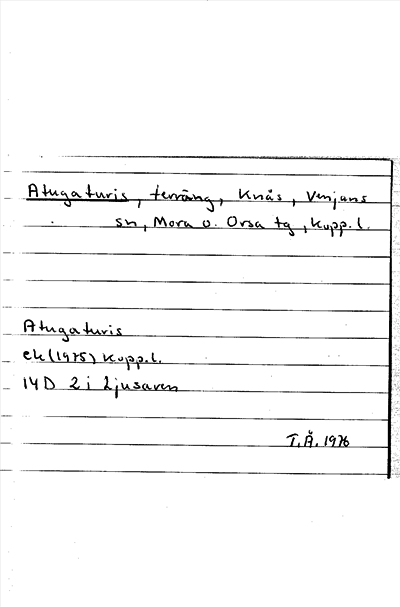 Atugaturis, terräng, Knås, Venjans
sn, Mora o. Orsa tg, Kopp. l.
Atugaturis
ek (1975) Kopp. l.
14D 2 i Ljusaren
T.Å. 1976